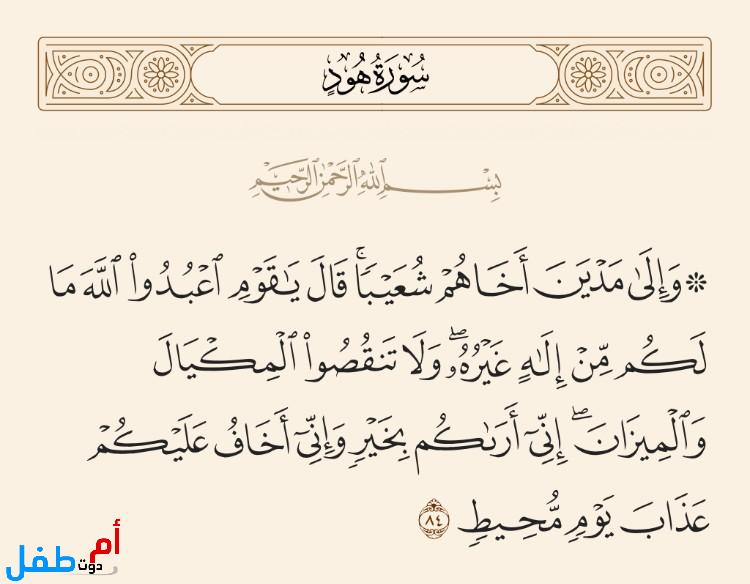 سُورَةُ هُودٍ
بِسْمِ ٱللَّهِ ٱلرَّحْمَٰنِ ٱلرَّحِيمِ
۞ وَإِلَىٰ مَدْيَنَ أَخَاهُمْ شُعَيْبًاۚ قَالَ يَٰقَوْمِ ٱعْبُدُوا۟ ٱللَّهَ مَا
لَكُم مِّنْ إِلَٰهٍ غَيْرُهُۥۖ وَلَا تَنقُصُوا۟ ٱلْمِكْيَالَ
وَٱلْمِيزَانَۖ إِنِّىٓ أَرَىٰكُم بِخَيْرٍ وَإِنِّىٓ أَخَافُ عَلَيْكُمْ
عَذَابَ يَوْمٍ مُّحِيطٍ ٨٤
أم
دوت طفل